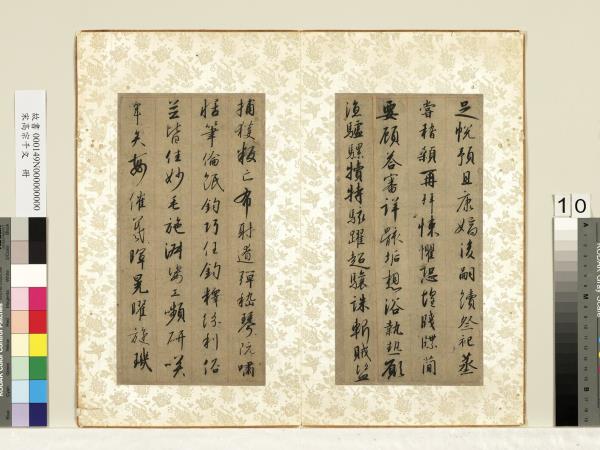 足悅預且康嫡後嗣續祭祀蒸
嘗稽顙再拜悚懼恐惶牋牒簡
要顧答審詳骸垢想浴執熱願
涼驢騾犢特駭躍超驤誅斬賊盜
捕獲叛亡布射遼彈嵇琴阮嘯
恬筆倫紙鈞巧任釣釋紛利俗
並皆佳妙毛施淑姿工嚬研咲
年矢每催羲暉晃曜旋璣
故書000149N000000000
宋高宗千文 冊
10